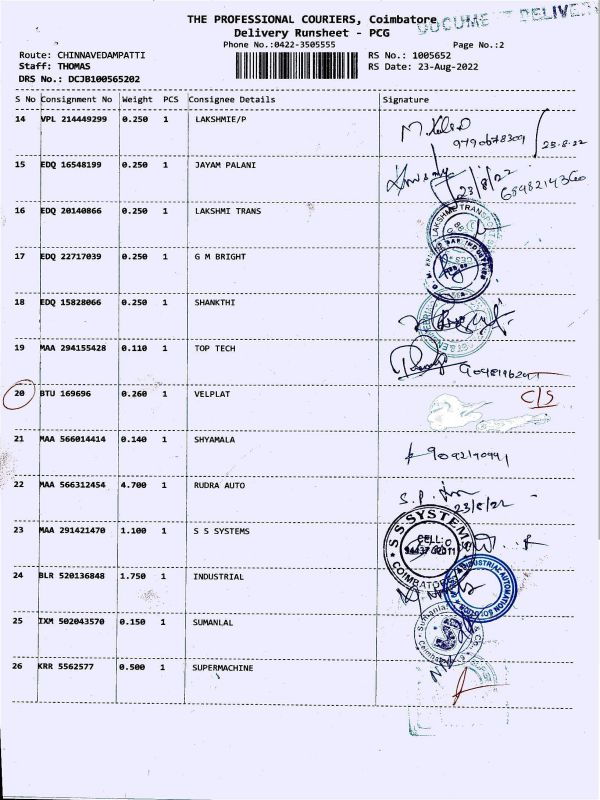 THE PROFESSIONAL COURIERS, Coimbatore
DOCUMENT DELIVER
Delivery Runsheet - PCG
Phone No.:0422-3505555
Page No.:2
Route: CHINNAVEDAMPATTI
RS No.: 1005652
Staff: THOMAS
RS Date: 23-Aug-2022
DRS No.: DCJB100565202
S No Consignment No Weight PCS Consignee Details Signature
14 VPL 214449299 0.250 1 LAKSHMIE/P
9790678309
23.8.22
15 EDQ 16548199 0.250 1 JAYAM PALANI
23/8/22
16 EDQ 20140866 0.250 1 LAKSHMI TRANS
LAKSHMI TRANS
17 EDQ 22717039 0.250 1 G M BRIGHT
18 EDQ 15828066 0.250 1 SHANKTHI
19 MAA 294155428 0.110 1 TOP TECH
20 BTU 169696 0.260 1 VELPLAT
C/S
21 MAA 566014414 0.140 1 SHYAMALA
22 MAA 566312454 4.700 1 RUDRA AUTO
23/8/22
23 MAA 291421470 1.100 1 S S SYSTEMS
S S SYSTEMS
CELL:
COIMBATORE
24 BLR 520136848 1.750 1 INDUSTRIAL
INDUSTRIAL AUTOMATION
25 IXM 502043570 0.150 1 SUMANLAL
Sumanlal & Co
Coimbatore
26 KRR 5562577 0.500 1 SUPERMACHINE